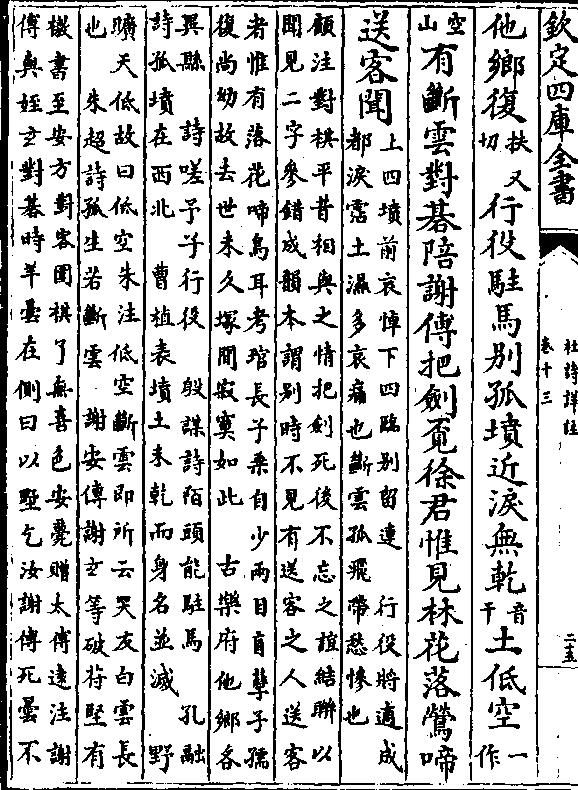 欽定四庫全書
杜詩詳註
卷十三
二十五
他鄉復扶又切行役駐馬別孤墳近淚無乾音干土低空一作
空山有斷雲對碁陪謝傅把劍覓徐君惟見林花落鶯啼
送客聞
上四墳前哀悼下四臨别留連 行役將適成
都淚霑土濕多哀痛也斷雲孤飛帶愁慘也
顧注對棋平昔相與之情把劍死後不忘之誼結聨以
聞見二字參錯成韻本謂別時不見有送客之人送客
者惟有落花啼鳥耳考琯長子乘自少兩目盲孽子孺
復尚幼故去世未久塚間寂寞如此 古樂府他鄉各
異縣 詩嗟予子行役 殷謀詩陌頭能駐馬 孔融
詩孤墳在西北 曹植表墳土未乾而身名並滅 野
曠天低故曰低空朱注低空斷雲即所云哭友白雲長
也 朱超詩孤生若斷雲 謝安傳謝玄等破苻堅有
檄書至安方對客圍棋了無喜色安薨贈太傅遠注謝
傅與姪玄對碁時羊曇在側曰以墅乞汝謝傅死曇不